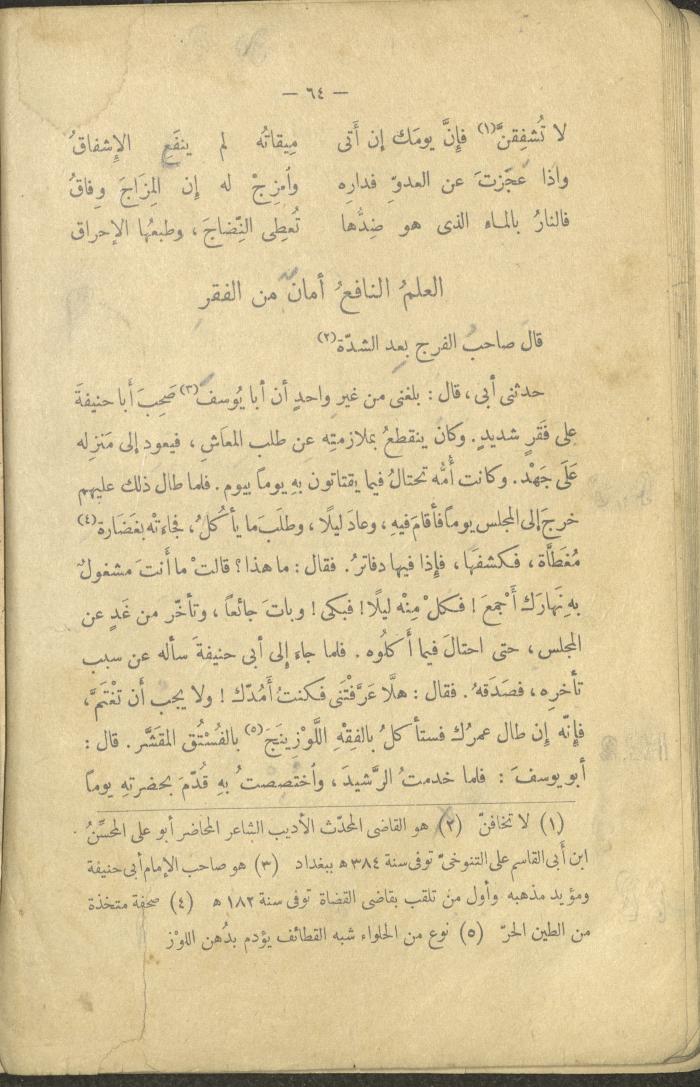 — ٦٤ —
لا تُشفِقنَّ(١) فإنَّ يومَك إن أَتى مِيقاتُه لم ينفَعِ الإِشفاقُ
واذا عَجَزتَ عن العدوِّ فدارِه وأمزِجْ له إن المِزَاجَ وِفاقُ
فالنارُ بالمـاء الذى هو ضِدُّها تُعطِى النِّضاجَ ، وطبعُها الإحراق
العلمُ النافعُ أمانٌ من الفقر
قال صاحبُ الفرج بعد الشدّة(٢)
حدثنى أبى ، قال : بلغنى من غير واحدٍ أن أبا يُوسفَ(٣) صَحِبَ أَبا حنيفةَ
على فَقرٍ شديدٍ . وكان ينقطعُ بملازمتِه عن طلب المعَاشِ ، فيعود إلى مَنزِله
عَلَى جَهْد . وكانت أُمُّه تحتالُ فيما يقتاتون بهِ يوماً بيوم . فلما طال ذلك عليهم
خرجَ إلى المجلس يوماً فأقامَ فيهِ ، وعادَ ليلًا ، وطلَبَ ما يأكُلُ ، فجاءتْه بغَضَارة(٤)
مُغَطَّاة ، فكشفَهَا ، فإِذا فيها دفاترُ . فقال : ما هذا ؟ قالتْ ما أَنتَ مشغولٌ
بهِ نَهارَك أَجمعَ ! فكلْ مِنْه ليلًا ! فبكى ! وباتَ جائعاً ، وتأخّر من غَدٍ عن
المجلس ، حتى احتالَ فيما أَكلُوه . فلما جاء إلى أبى حنيفةَ سأله عن سبب
تأخره ، فصَدَقهُ . فقال : هلَّا عَرَّفتَنى فكنتُ أَمُدّك ! ولا يجب أَن تَغْتَمَّ ،
فإنّه إن طال عمرُك فستأكلُ بالفِقْهِ اللَّوْزِينَجَ(٥) بالفُسْتُق المقَشَّر . قال :
أبو يوسفَ : فلما خدمتُ الرَّشيدَ ، وأختصصتُ بهِ قُدِّمَ بحضرتهِ يوماً
(١) لا تخافنّ (٢) هو القاضى المحدّث الأديب الشاعر المحاضر أبو على المحسِّنُ
ابن أبى القاسم على التنوخىّ توفى سنة ٣٨٤ ﻫ ببغداد (٣) هو صاحب الإمام أبى حنيفة
ومؤيد مذهبه وأول من تلقب بقاضى القضاة توفى سنة ١٨٢ ﻫ (٤) صحفة متخذة
من الطين الحرّ (٥) نوع من الحلواء شبه القطائف يؤدم بدُهن اللوْز